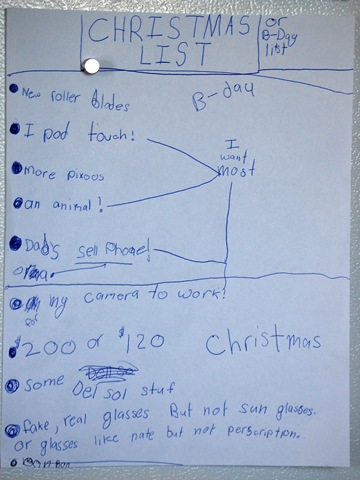 CHRISTMAS LIST
or B-Day list
B-day
New roller blades
I pod touch!
I want most
More pixoos
an animal!
Dad's sell Phone!
my camera to work!
$200 or $120
Christmas
some Del sol stuf
fake, real glasses But not sun glasses.
or glasses like nate but not perscription.